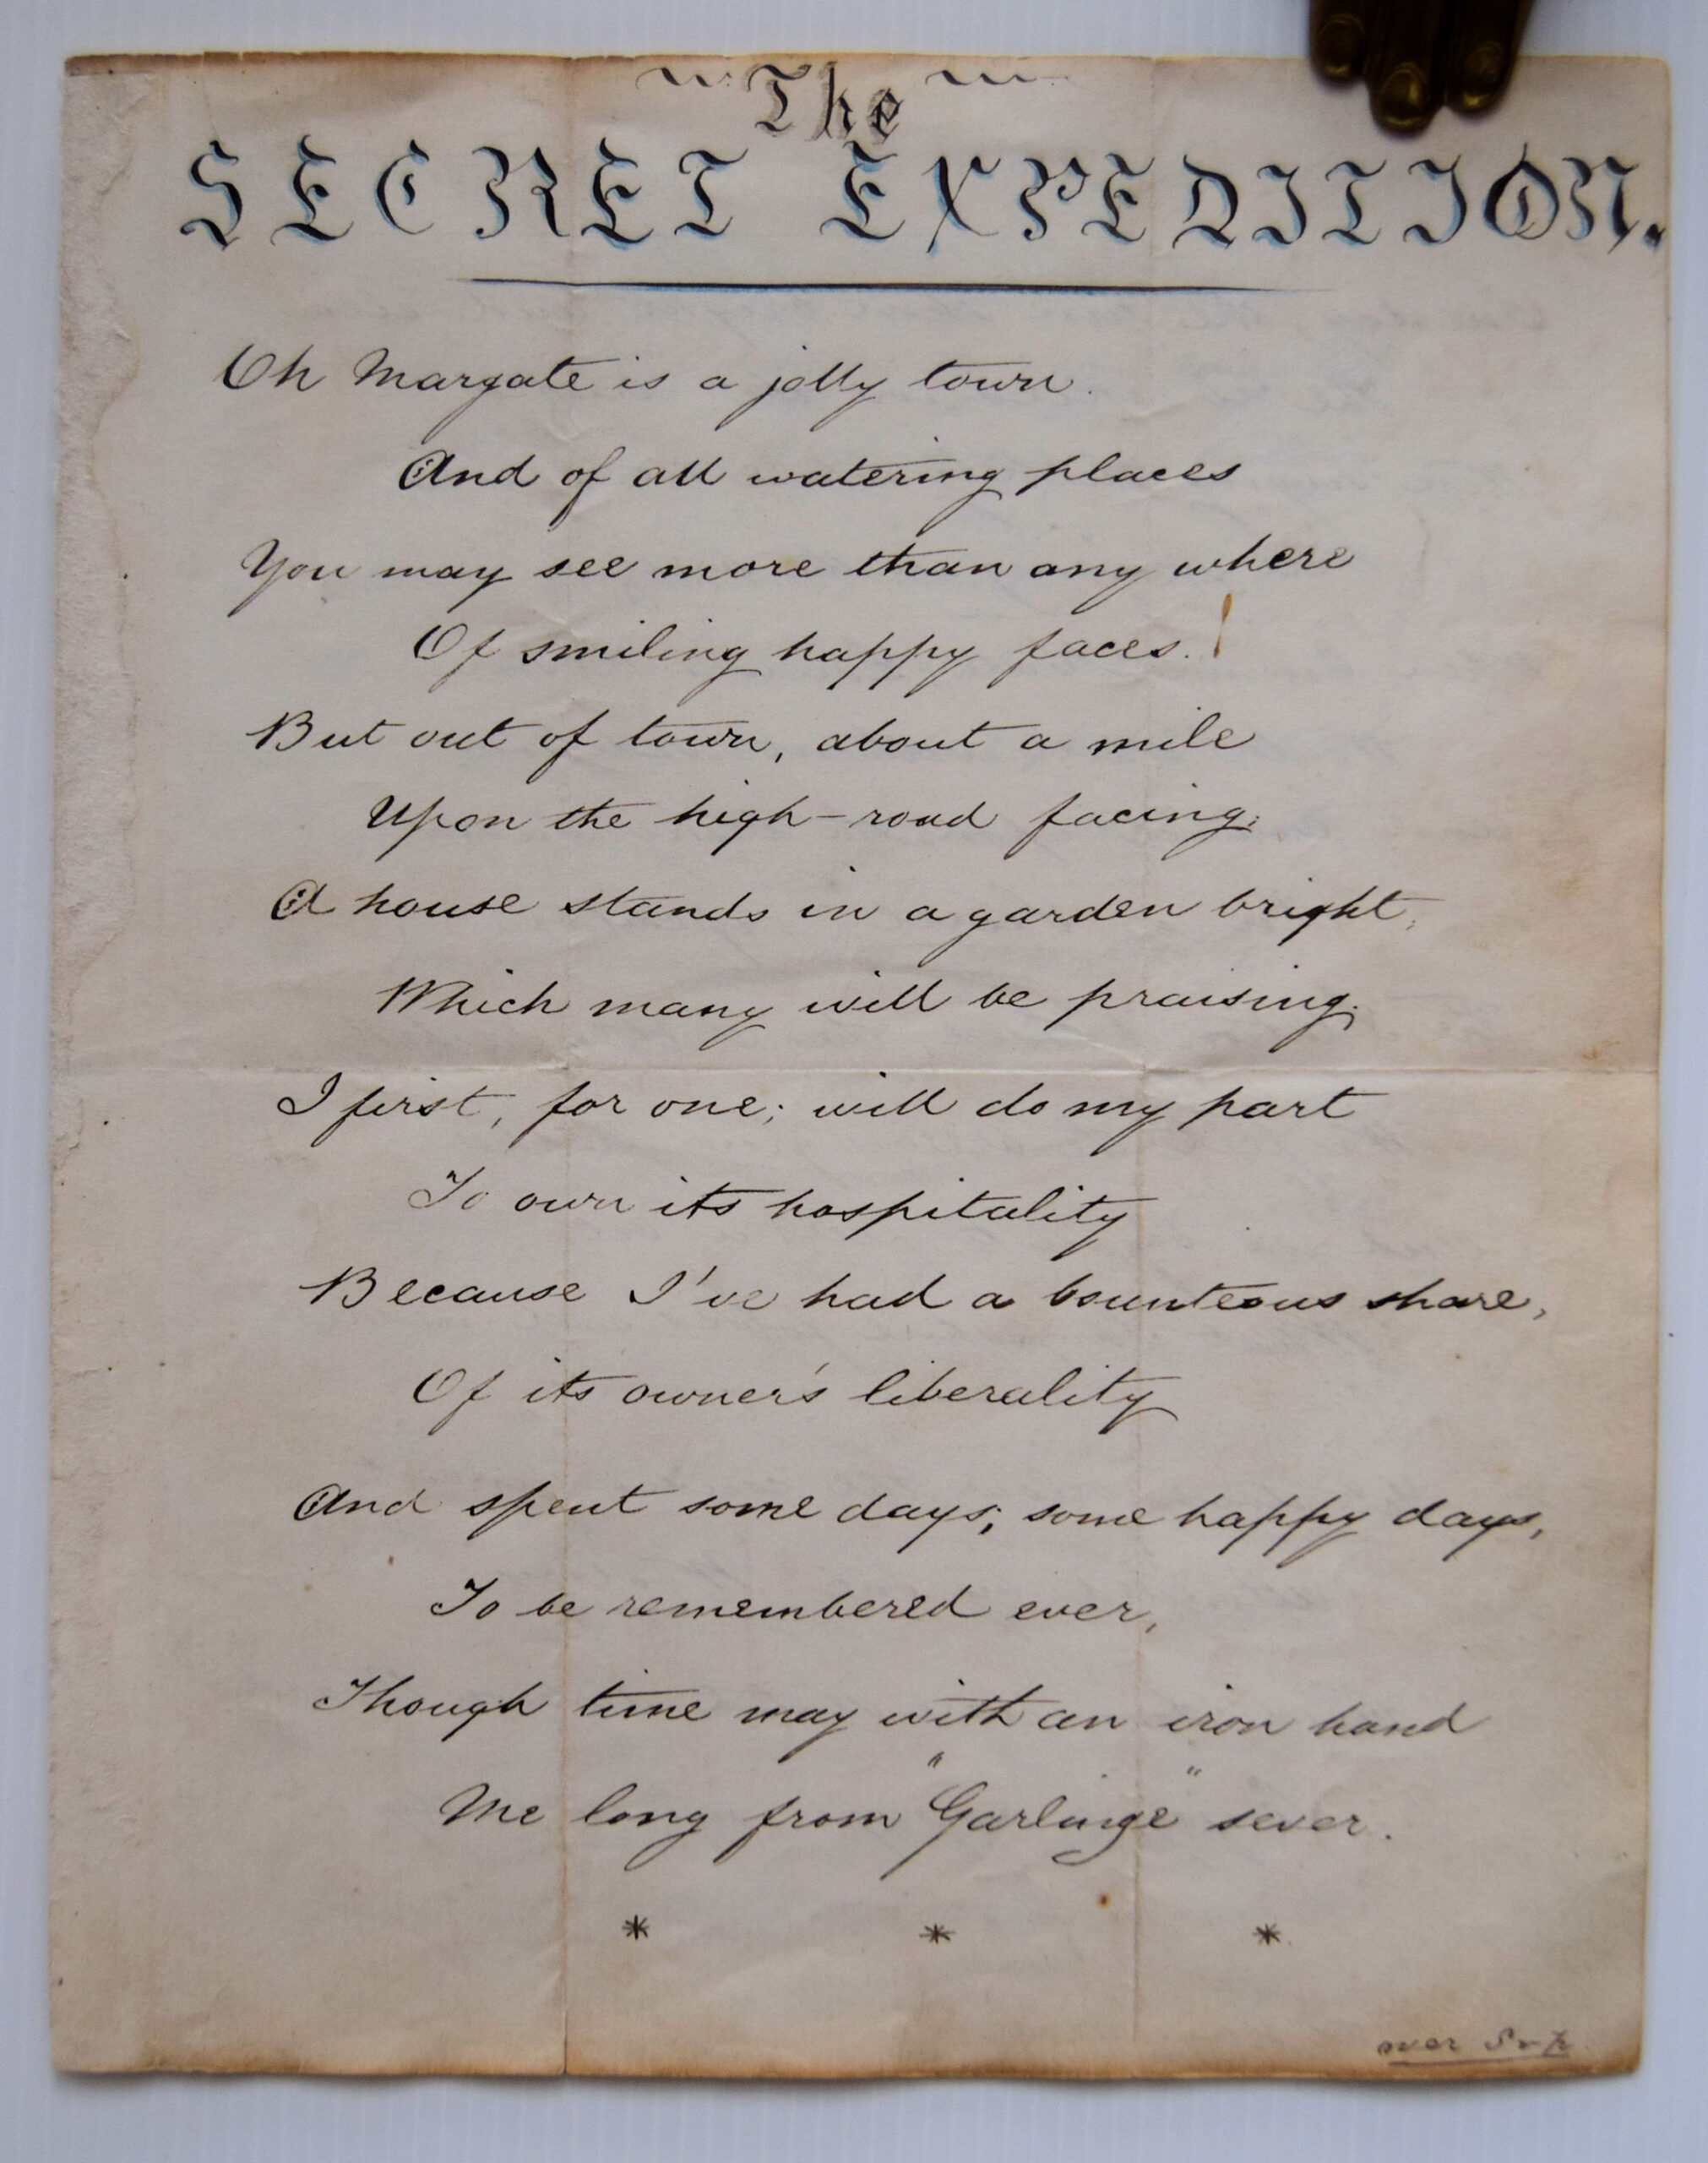 The
SECRET EXPEDITION.
Oh Margate is a jolly town.
And of all watering places
You may see more than any where
Of smiling happy faces.!
But out of town, about a mile
Upon the high-road facing;
A house stands in a garden bright,
Which many will be praising;
I first, for one; will do my part
To own its hospitality
Because I've had a bounteous share,
Of its owner's liberality
And spent some days; some happy days,
To be remembered ever,
Though time may with an iron hand
Me long from "Garlinge" sever.
* * *
over Svp